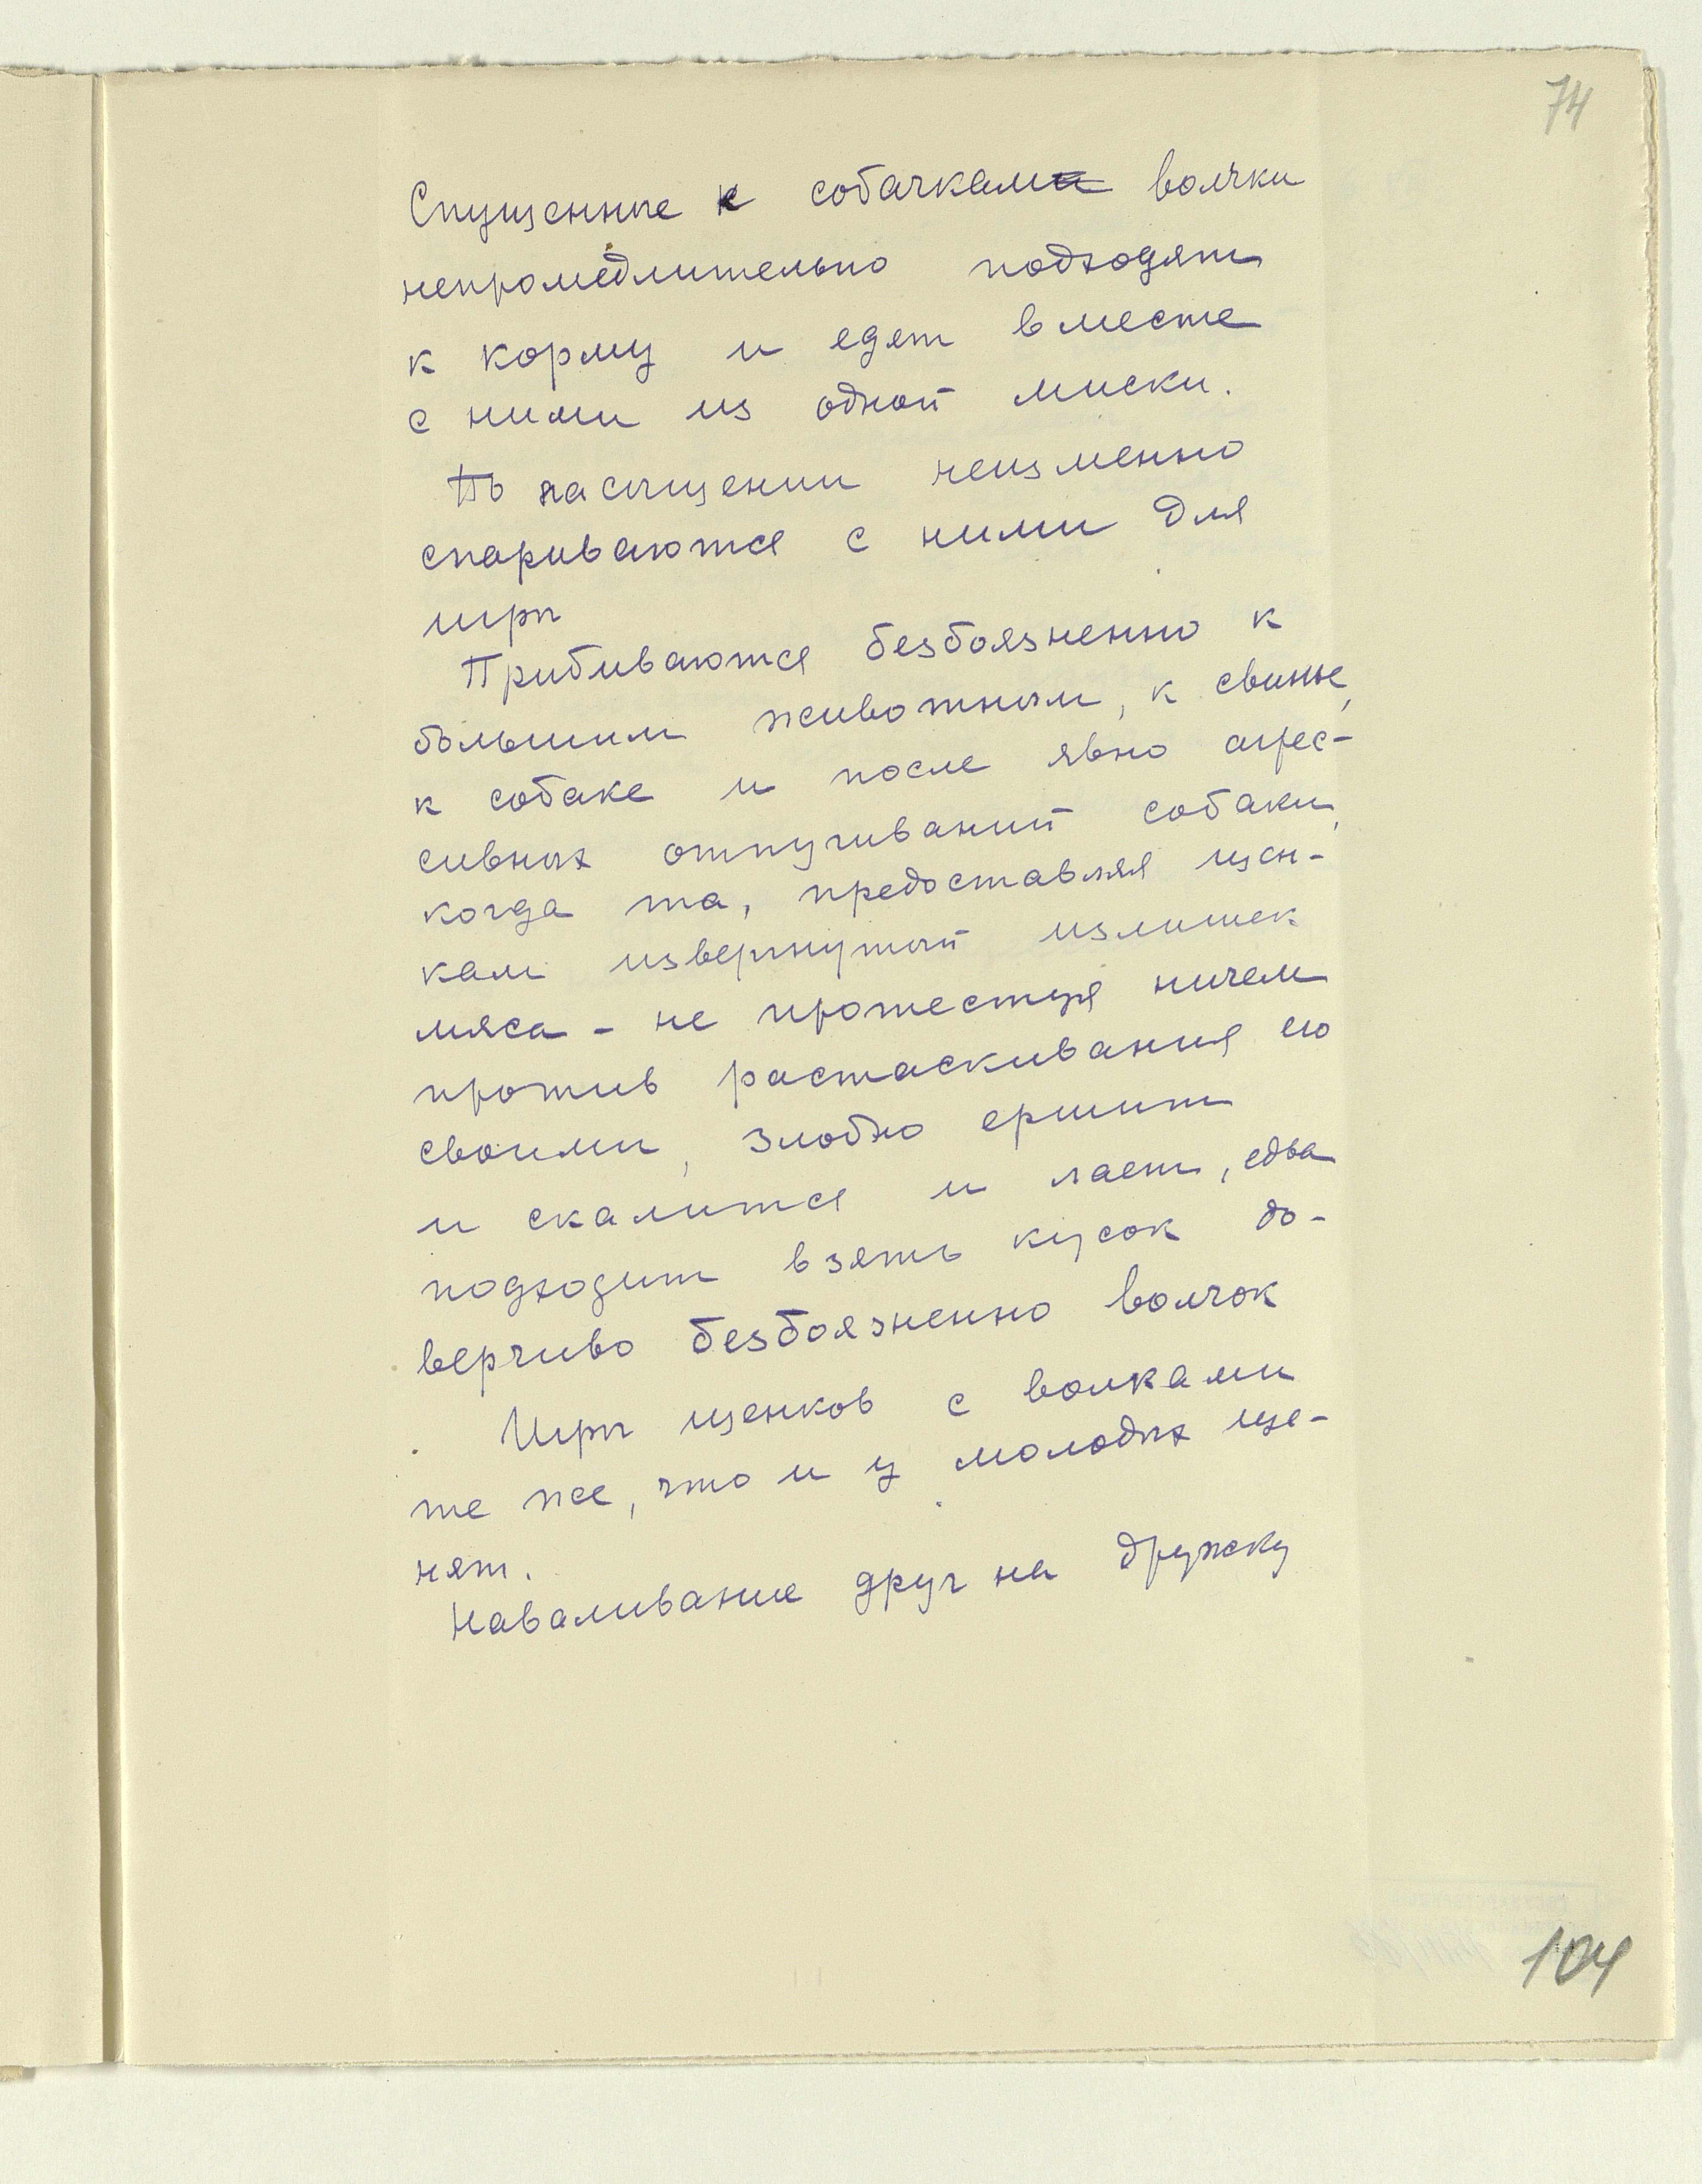 74
Спущенные к собачкам волчки
непромедлительно подходят
к корму и едят вместе
с ними из одной миски.
По насыщении неизменно
спариваются с ними для
игры
Прибиваются безбоязненно к
большим животным, к свинье,
к собаке и после явно агрес-
сивных отпугиваний собаки,
когда та, предоставляя щен-
кам извергнутый излишек
мяса - не протестуя ничем
против растаскивания его
своими, злобно ершит
и скалится и лает, едва
подходит взять кусок до-
верчиво безбоязненно волчок
Игры щенков с волками
те же, что и у молодых ще-
нят.
Наваливание друг на дружку
104